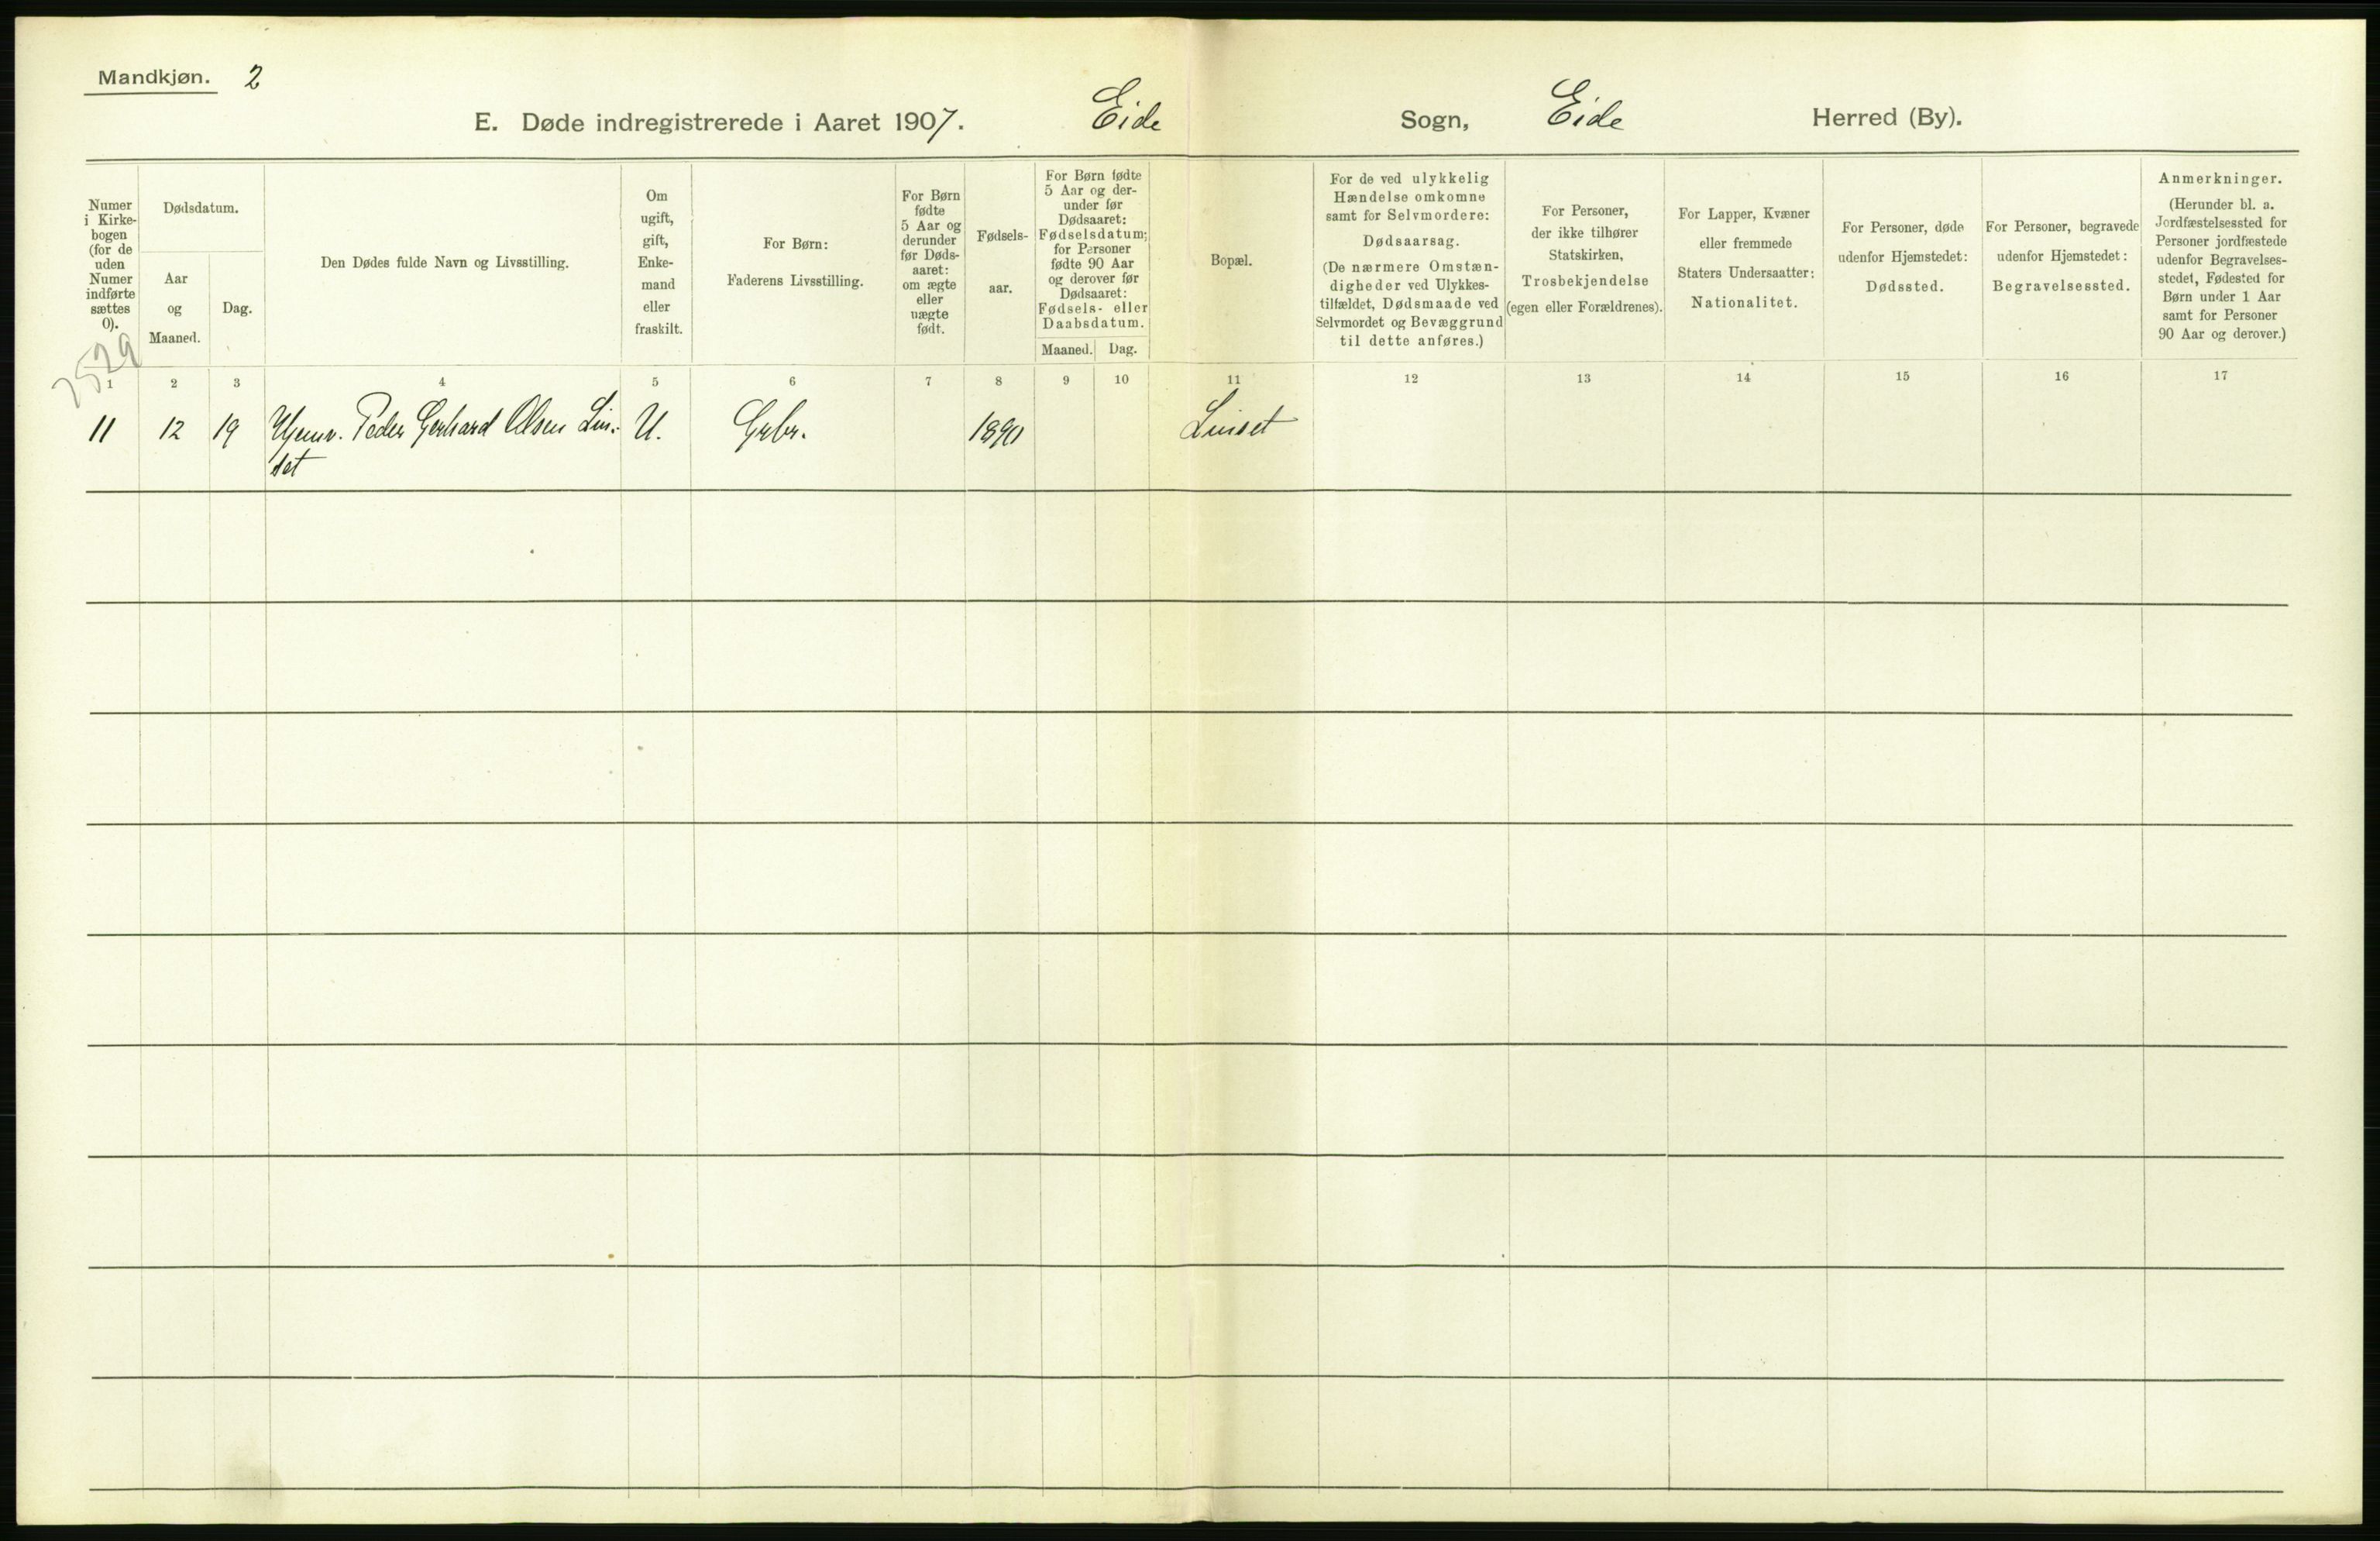 Mandkjøn. 2
E. Døde indregistrerede i Aaret 1907. Eide Sogn, Eide Herred (By).
Numer
i Kirke-
bogen
(for de
uden
Numer
indførte
sættes
0).
Dødsdatum.
Aar
og
Maaned.
Dag.
Den Dødes fulde Navn og Livsstilling.
Om
ugift,
gift,
Enke-
mand
eller
fraskilt.
For Børn:
Faderens Livsstilling.
For Børn
fødte
5 Aar og
derunder
før Døds-
aaret:
om ægte
eller
uægte
født.
Fødsels-
aar.
For Børn fødte
5 Aar og der-
under før
Dødsaaret:
Fødselsdatum;
for Personer
fødte 90 Aar
og derover før
Dødsaaret:
Fødsels- eller
Daabsdatum.
Maaned. Dag.
Bopæl.
For de ved ulykkelig
Hændelse omkomne
samt for Selvmordere:
Dødsaarsag.
(De nærmere Omstæn-
digheder ved Ulykkes-
tilfældet, Dødsmaade ved
Selvmordet og Bevæggrund
til dette anføres.)
For Personer,
der ikke tilhører
Statskirken,
Trosbekjendelse
(egen eller Forældrenes).
For Lapper, Kvæner
eller fremmede
Staters Undersaatter:
Nationalitet.
For Personer, døde
udenfor Hjemstedet:
Dødssted.
For Personer, begravede
udenfor Hjemstedet:
Begravelsessted.
Anmerkninger.
(Herunder bl. a.
Jordfæstelsessted for
Personer jordfæstede
udenfor Begravelses-
stedet, Fødested for
Børn under 1 Aar
samt for Personer
90 Aar og derover.)
2529
1 2 3 4 5 6 7 8 9 10 11 12 13 14 15 16 17
11 12 19 Peder Gerhard Olsen Lin- U. Grbr. 1890 Linset
set